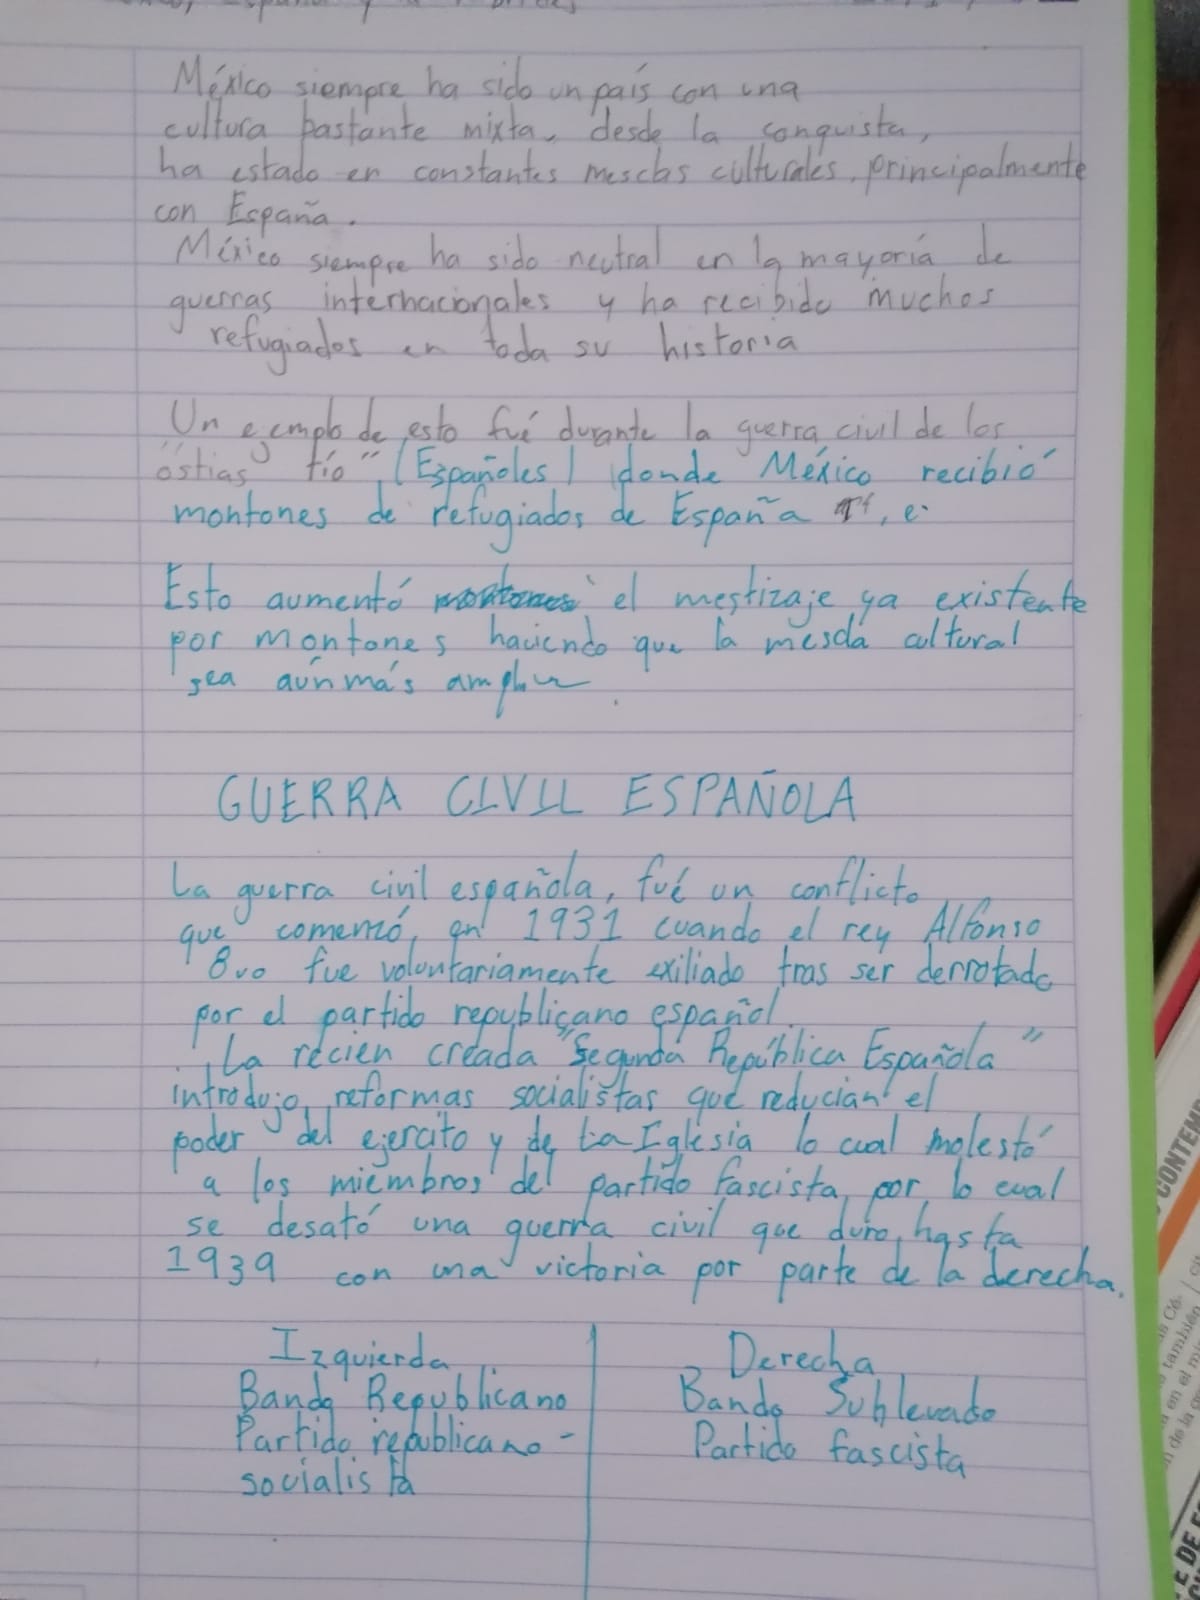 México siempre ha sido un país con una
cultura bastante mixta, desde la conquista,
ha estado en constantes mesclas culturales, principalmente
con España.
México siempre ha sido neutral en la mayoría de
guerras internacionales y ha recibido muchos
refugiados en toda su historia
Un ejemplo de esto fué durante la guerra civil de los
"ostias tío" (Españoles) donde México recibió
montones de refugiados de España
Esto aumentó el mestizaje ya existente
por montones haciendo que la mescla cultural
sea aún más amplia.
GUERRA CIVIL ESPAÑOLA
La guerra civil española, fué un conflicto
que comenzó, en 1931 cuando el rey Alfonso
8vo fue voluntariamente exiliado tras ser derrotado
por el partido republicano español.
La recien creada "Segunda República Española"
introdujo, reformas socialistas que reducían el
poder del ejercito y de La Iglesia lo cual molestó
a los miembros del partido fascista, por lo cual
se desató una guerra civil que duro, hasta
1939 con una victoria por parte de la derecha.
Izquierda Derecha
Bando Republicano Bando Sublevado
Partido republicano- Partido fascista
socialista
CONTEMP
también
en el mi
de la
E DE